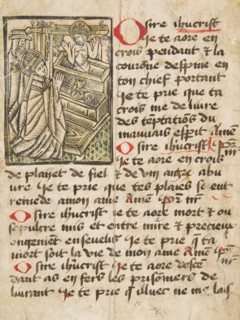 O sire ihūcrist
Je te aore en
crois pendant & la
couronne despine en
ton chief portant
Je te prie que ta
crois me de livre
des tēptatiōs du
mauuais esperit Amē
O sire ihūcrist
Je te aore en crois
de planet de fiel & de vin aigre abu
ure Je te prie que tes plaies so ent
remede amon ame Amē
O sire ihūcrist ie te aore mort & ou
sepulcre mis et entre mire & precieux
ongement enseuelis Je te prie q̄ ta
mort soit la vie de mon ame Amē
O sire ihūcrist Je te aore
dant as en fers les prisonniers de
liurant Je te prie q̄ ne me lais